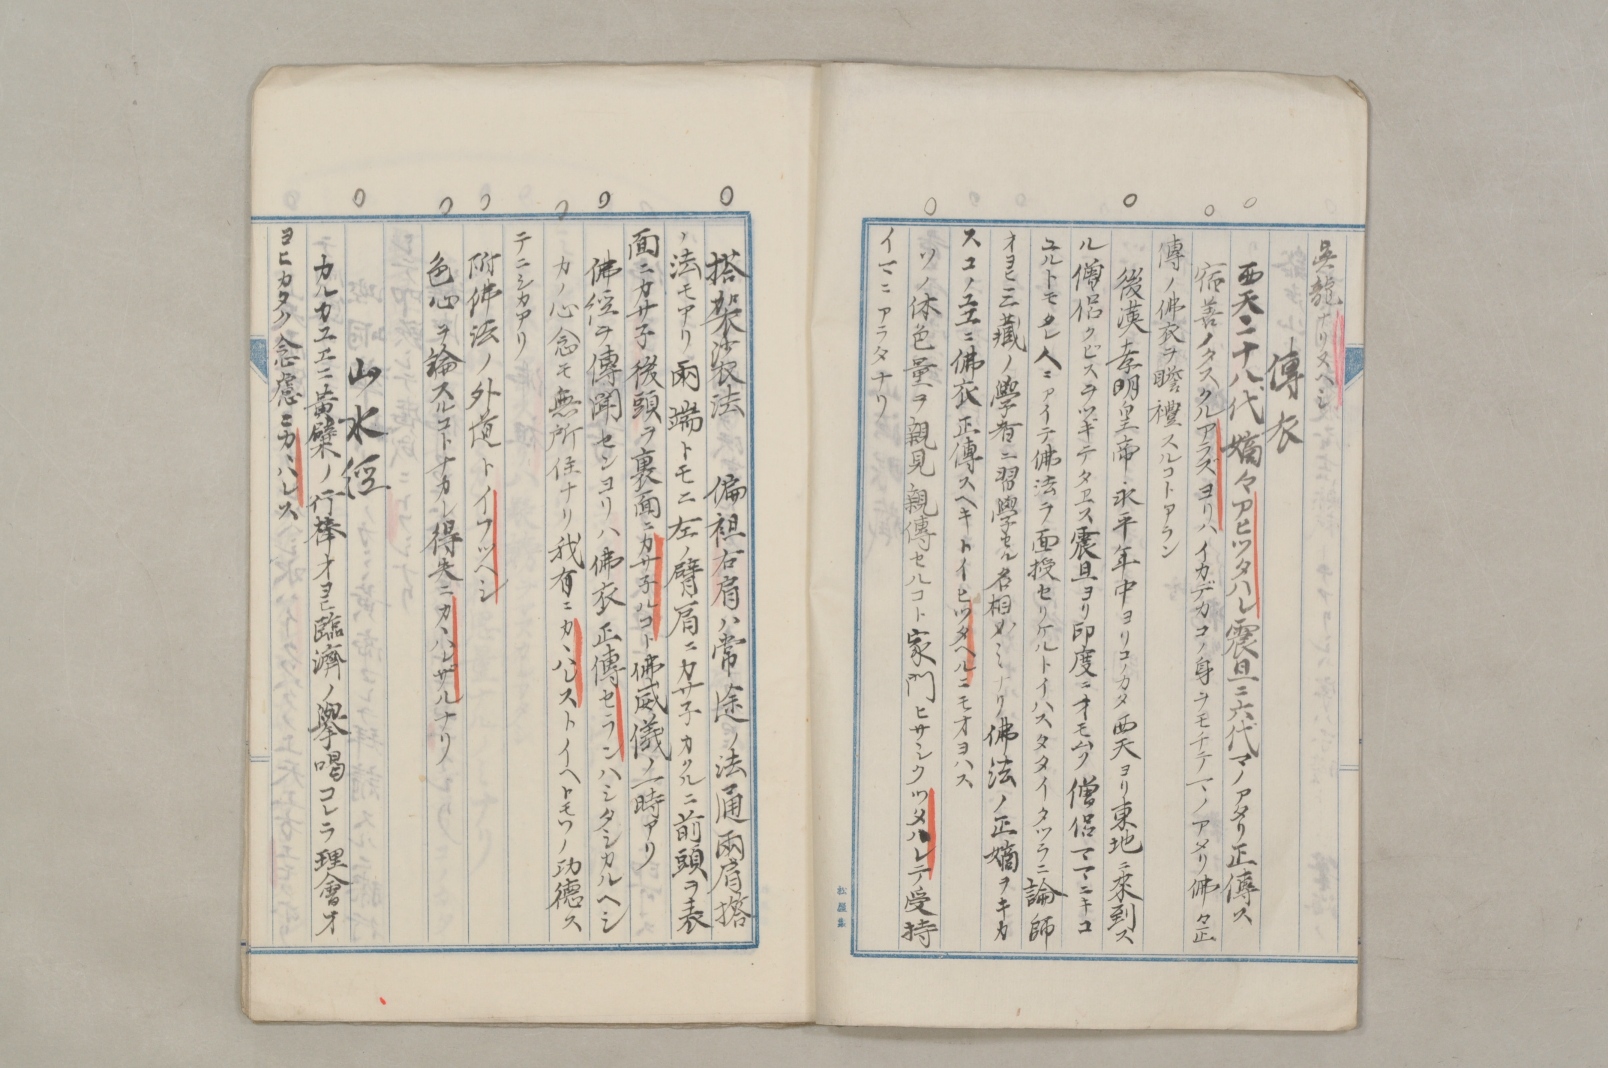 異龍ナリヌヘシ
傳衣
西天二十八代嫡々アヒツタハレ震旦ニ六代マノアタリ正傳ス
宿善ノタスクルアラスヨリハイカデカコノ身ヲモチテマノアタリ佛々正
傳ノ佛衣ヲ瞻禮スルコトアラン
後漢孝明皇帝永平年中ヨリコノカタ西天ヨリ東地ニ來到ス
ル僧侶クビスヲツギテタエス震旦ヨリ印度ニオモムク僧侶ママニキコ
ユルトモタレ人ニアイテ佛法ヲ面授セリケルトイハスタタイタツラニ論師
オヨヒ三藏ノ學者ニ習學セル名相ノミナリ佛法ノ正嫡ヲキカ
スコノユエニ佛衣正傳スヘキトイヒツタヘルニモオヨハス
ソノ体色量ヲ親見親傳セルコト家門ヒサシクツタハレテ受持
イマニアラタナリ
搭袈裟法 偏袒右肩ハ常途ノ法通兩肩搭
ノ法モアリ兩端トモニ左ノ臂肩ニカサ子カクルニ前頭ヲ表
面ニカサ子後頭ヲ裏面ニカサ子ルコト佛威儀ノ一時アリ
佛經ヲ傳聞センヨリハ佛衣正傳セランハシタシカルヘシ
カノ心念モ無所住ナリ我有ニカヽハレストイヘトモソノ功德ス
テニシカアリ
附佛法ノ外道トイフツヘシ
色心ヲ論スルコトナカレ得失ニカヽハレザルナリ
山水經
カルカユエニ黄檗ノ行棒オヨヒ臨濟ノ擧喝コレラ理會オ
ヨヒカタク念慮ニカヽハレス
松屋製